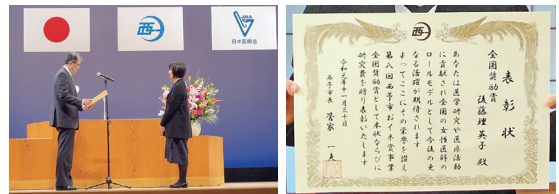 日本医師会
表彰状
全国奨励賞
後藤理英子 殿
あなたは医学研究や医療活動
に貢献され全国の女性医師の
ロールモデルとして今後の更
なる活躍が期待されます
よってここにその栄誉を讃え
第八回西予市おイネ賞事業
全国奨励賞として本状ならびに
研究費を贈り表彰いたします
令和元年十一月三十日
西予市長 管家一夫